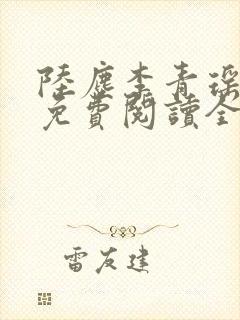 陸塵李青瑶
免費閱讀全
雷友建